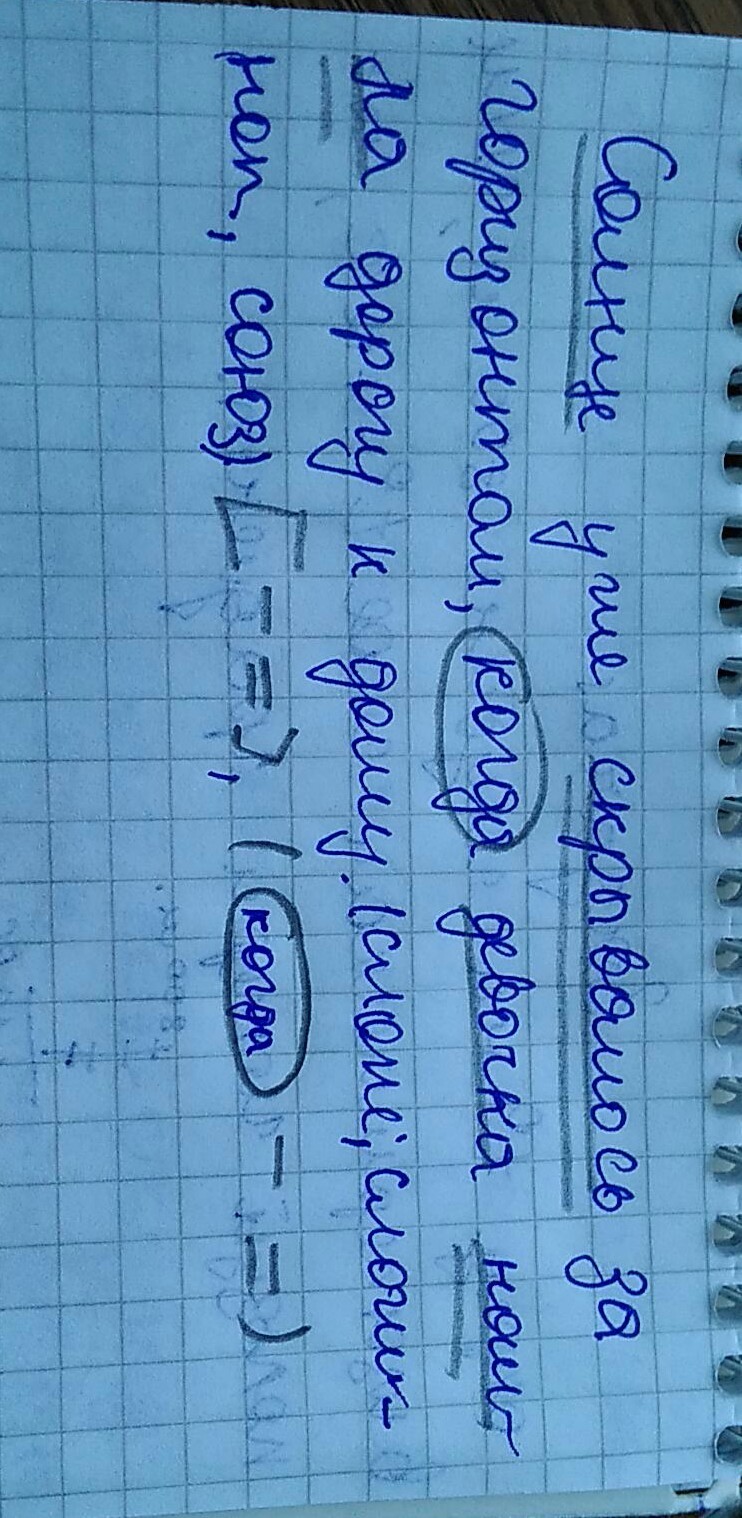 Солнце уже скрывалось за
горизонтом, когда девочка наш-
ла дорогу к дому. (сложн, слож-
ноп, союз) [- =], (когда - =)